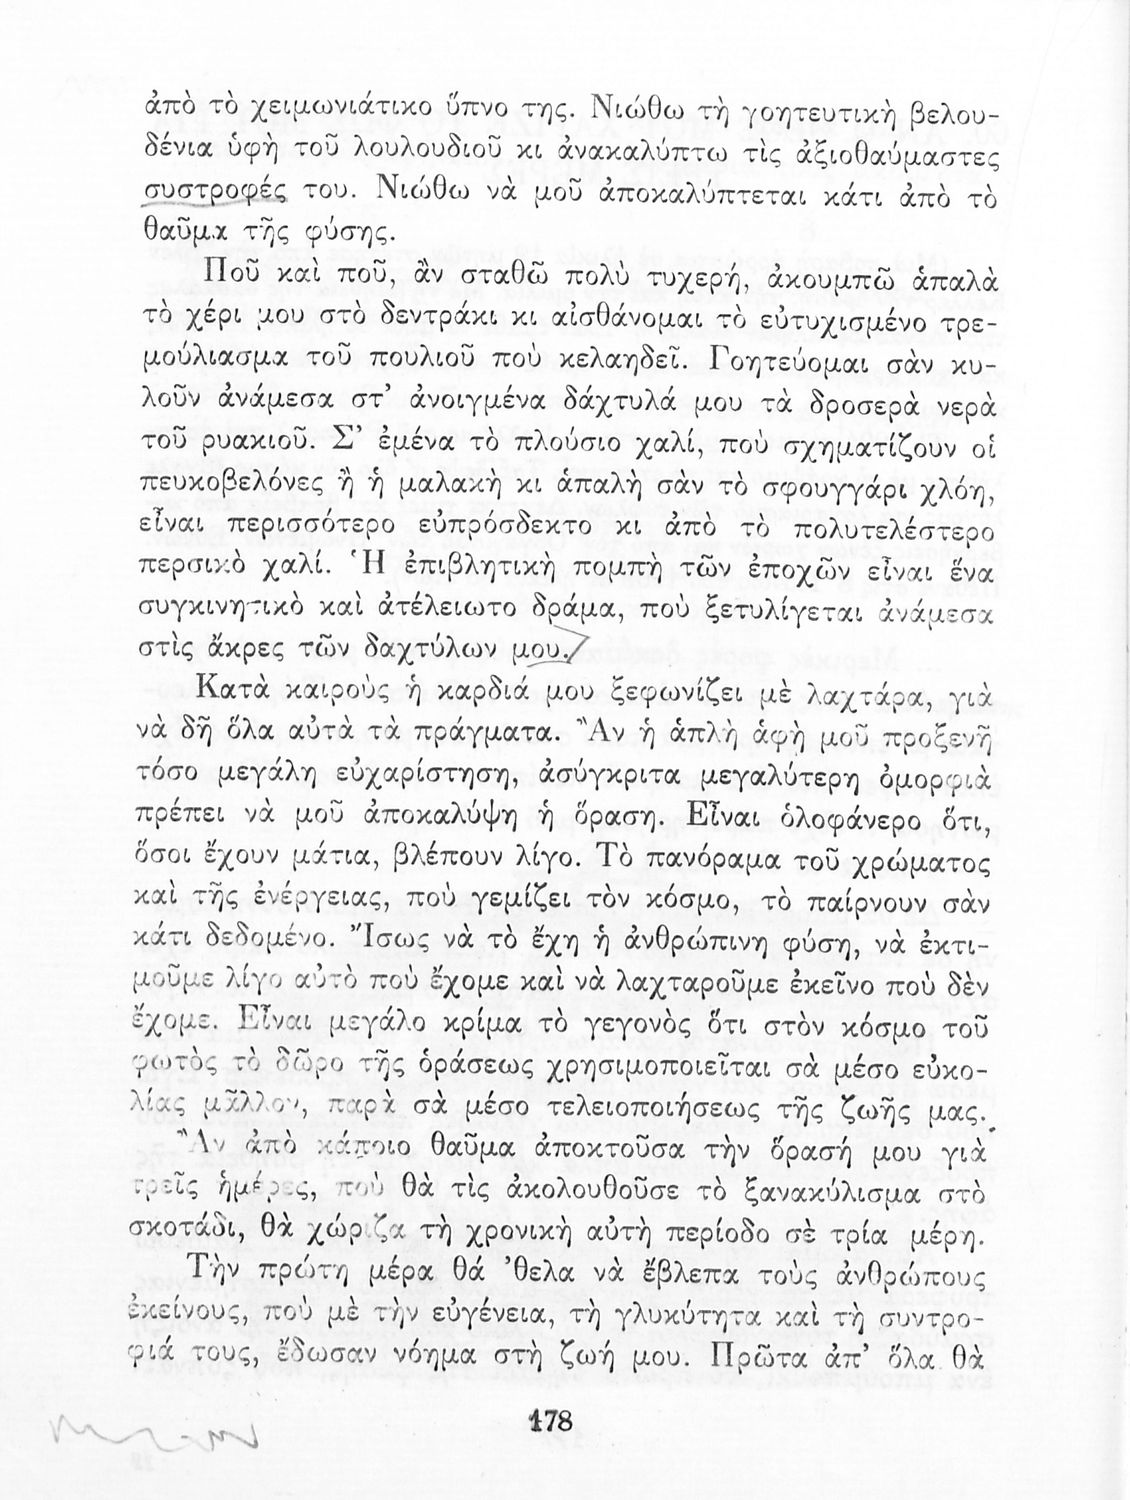 ἀπὸ τὸ χειμωνιάτικο ὕπνο της. Νιώθω τὴ γοητευτικὴ βελου-
δένια ὑφὴ τοῦ λουλουδιοῦ κι ἀνακαλύπτω τὶς ἀξιοθαύμαστες
συστροφές του. Νιώθω νὰ μοῦ ἀποκαλύπτεται κάτι ἀπὸ τὸ
θαῦμα τῆς φύσης.
Ποῦ καὶ ποῦ, ἂν σταθῶ πολὺ τυχερή, ἀκουμπῶ ἁπαλὰ
τὸ χέρι μου στὸ δεντράκι κι αἰσθάνομαι τὸ εὐτυχισμένο τρε-
μούλιασμα τοῦ πουλιοῦ ποὺ κελαηδεῖ. Γοητεύομαι σὰν κυ-
λοῦν ἀνάμεσα στ’ ἀνοιγμένα δάχτυλά μου τὰ δροσερὰ νερὰ
τοῦ ρυακιοῦ. Σ’ ἐμένα τὸ πλούσιο χαλί, ποὺ σχηματίζουν οἱ
πευκοβελόνες ἢ ἡ μαλακὴ κι ἁπαλὴ σὰν τὸ σφουγγάρι χλόη,
εἶναι περισσότερο εὐπρόσδεκτο κι ἀπὸ τὸ πολυτελέστερο
περσικὸ χαλί. Ἡ ἐπιβλητικὴ πομπὴ τῶν ἐποχῶν εἶναι ἕνα
συγκινητικὸ καὶ ἀτέλειωτο δράμα, ποὺ ξετυλίγεται ἀνάμεσα
στὶς ἄκρες τῶν δαχτύλων μου.
Κατὰ καιροὺς ἡ καρδιά μου ξεφωνίζει μὲ λαχτάρα, γιὰ
νὰ δῆ ὅλα αὐτὰ τὰ πράγματα. Ἂν ἡ ἁπλὴ ἁφὴ μοῦ προξενῆ
τόσο μεγάλη εὐχαρίστηση, ἀσύγκριτα μεγαλύτερη ὀμορφιὰ
πρέπει νὰ μοῦ ἀποκαλύψη ἡ ὅραση. Εἶναι ὁλοφάνερο ὅτι,
ὅσοι ἔχουν μάτια, βλέπουν λίγο. Τὸ πανόραμα τοῦ χρώματος
καὶ τῆς ἐνέργειας, ποὺ γεμίζει τὸν κόσμο, τὸ παίρνουν σὰν
κάτι δεδομένο. Ἴσως νὰ τὸ ἔχη ἡ ἀνθρώπινη φύση, νὰ ἐκτι-
μοῦμε λίγο αὐτὸ ποὺ ἔχομε καὶ νὰ λαχταροῦμε ἐκεῖνο ποὺ δὲν
ἔχομε. Εἶναι μεγάλο κρίμα τὸ γεγονὸς ὅτι στὸν κόσμο τοῦ
φωτὸς τὸ δῶρο τῆς ὁράσεως χρησιμοποιεῖται σὰ μέσο εὐκο-
λίας μᾶλλον, παρὰ σὰ μέσο τελειοποιήσεως τῆς ζωῆς μας.
Ἂν ἀπὸ κάποιο θαῦμα ἀποκτοῦσα τὴν ὅρασή μου γιὰ
τρεῖς ἡμέρες, ποὺ θὰ τὶς ἀκολουθοῦσε τὸ ξανακύλισμα στὸ
σκοτάδι, θὰ χώριζα τὴ χρονικὴ αὐτὴ περίοδο σὲ τρία μέρη.
Τὴν πρώτη μέρα θά ’θελα νὰ ἔβλεπα τοὺς ἀνθρώπους
ἐκείνους, ποὺ μὲ τὴν εὐγένεια, τὴ γλυκύτητα καὶ τὴ συντρο-
φιά τους, ἔδωσαν νόημα στὴ ζωή μου. Πρῶτα ἀπ’ ὅλα θὰ
178